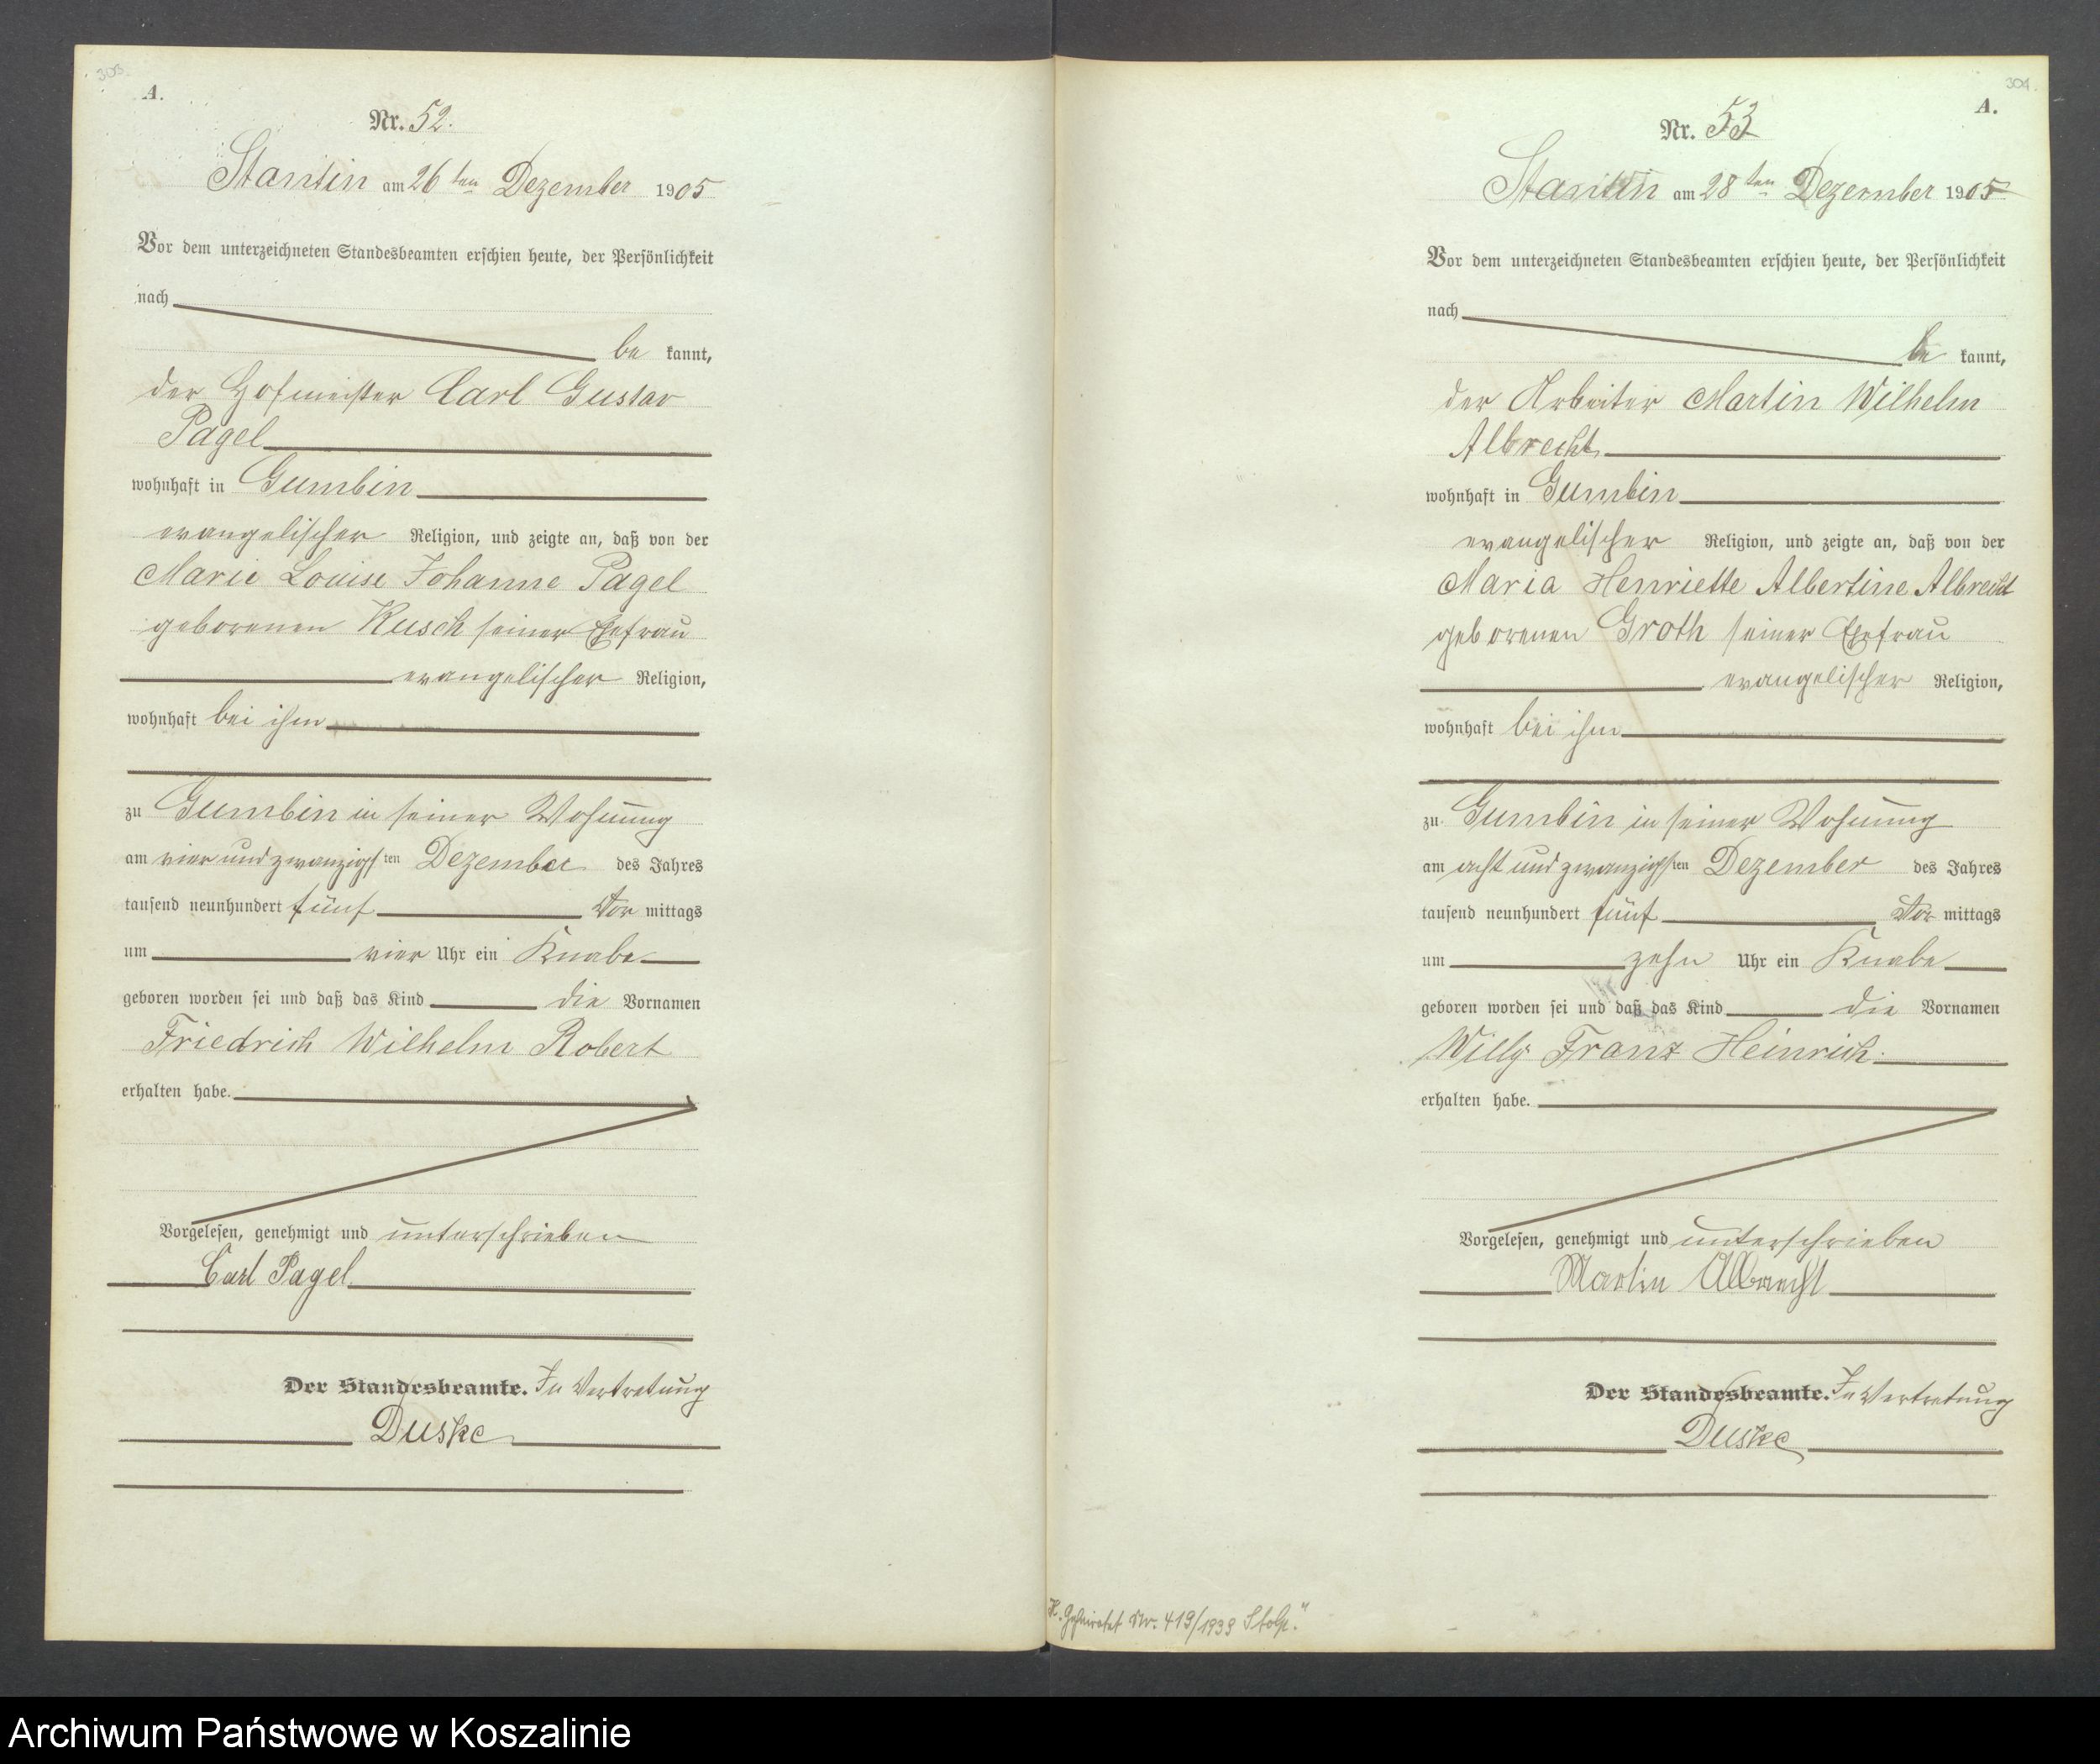 303.
A.
Nr. 52.
Stantin am 26 ten Dezember 1905
Vor dem unterzeichneten Standesbeamten erschien heute, der Persönlichkeit
nach
be kannt,
der Hofmeister Carl Gustav
Pagel
wohnhaft in Gumbin
evangelischer Religion, und zeigte an, daß von der
Marie Louise Johanne Pagel
geborenen Kusch seiner Ehefrau
evangelischer Religion,
wohnhaft bei ihm
zu Gumbin in seiner Wohnung
am vier und zwanzigsten Dezember des Jahres
tausend neunhundert fünf Vor mittags
um vier Uhr ein Knabe
geboren worden sei und daß das Kind die Vornamen
Friedrich Wilhelm Robert
erhalten habe.
Vorgelesen, genehmigt und unterschrieben
Carl Pagel
Der Standesbeamte. In Vertretung
Duske
304.
A.
Nr. 53
Stantin am 28 ten Dezember 1905
Vor dem unterzeichneten Standesbeamten erschien heute, der Persönlichkeit
nach
be kannt,
der Arbeiter Martin Wilhelm
Albrecht
wohnhaft in Gumbin
evangelischer Religion, und zeigte an, daß von der
Maria Henriette Albertine Albrecht
geborenen Groth seiner Ehefrau
evangelischer Religion,
wohnhaft bei ihm
zu Gumbin in seiner Wohnung
am acht und zwanzigsten Dezember des Jahres
tausend neunhundert fünf Vor mittags
um zehn Uhr ein Knabe
geboren worden sei und daß das Kind die Vornamen
Willy Franz Heinrich.
erhalten habe.
Vorgelesen, genehmigt und unterschrieben
Martin Albrecht
Der Standesbeamte. In Vertretung
Duske
H. Geheiratet Nr. 419/1939 Stolp."
Archiwum Państwowe w Koszalinie